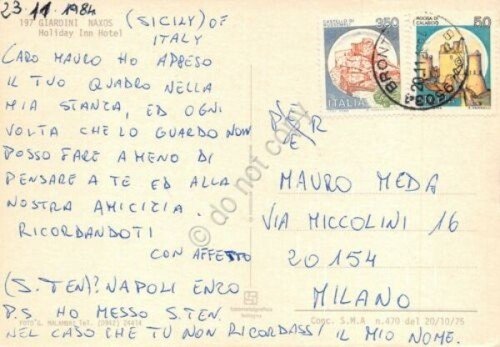 23.11.1984
197 GIARDINI NAXOS
Holiday Inn Hotel
(SICILY) OF
ITALY
CARO MAURO HO APPESO
IL TUO QUADRO NELLA
MIA STANZA, ED OGNI
VOLTA CHE LO GUARDO NON
POSSO FARE A MENO DI
PENSARE A TE ED ALLA
NOSTRA AMICIZIA.
RICORDANDOTI
CON AFFETTO
(S.TEN)? NAPOLI ENZO
P.S. HO MESSO S.TEN.
NEL CASO CHE TU NON RICORDASSI IL MIO NOME.
FOTO G. MALAMBRI Tel. (0942) 24414
bologna
Conc. S.M.A. n.470 del 20/10/75
350
ITALIA
ROCCA DI
CALASCIO
50
BRON
MAURO MEDA
VIA MICCOLINI 16
20154
MILANO
do not copy